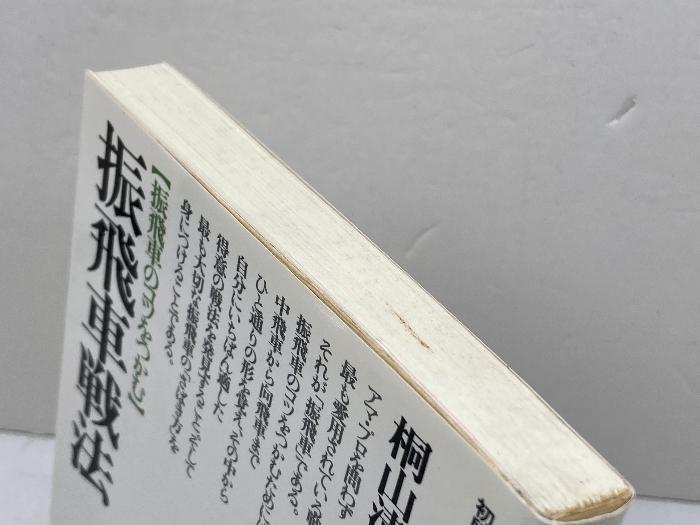 初
桐山清
アマ・プロを問わず
最も愛用されている戦
それが「振飛車」である。
振飛車のコツをつかむために
中飛車から向飛車まで
ひと通りの形を覚え、その中から
自分にいちばん適した
得意の戦法を発見すること、そして
最も大切な振飛車のさばき方を
身につけることである。
【振飛車のコツをつかむ】
振飛車戦法